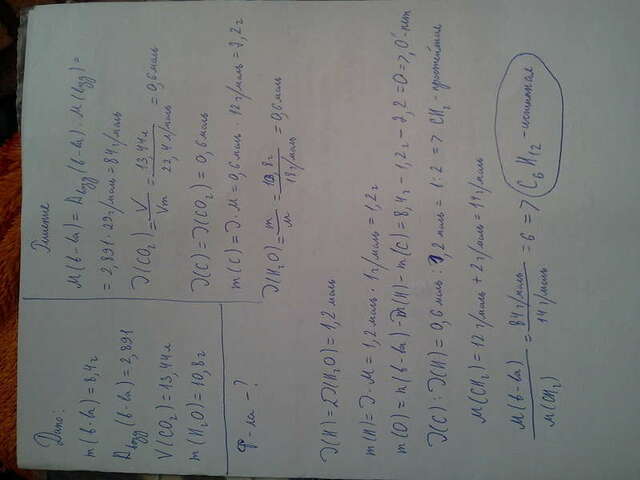 Дано:
m(в-ва) = 8,4г
Dвозд(в-ва) = 2,891
V(CO₂) = 13,44л
m(H₂O) = 10,8г
ф-ла - ?
Решение
M(в-ва) = Dвозд(в-ва) · M(возд) =
= 2,891 · 29 г/моль = 84 г/моль
ν(CO₂) = V/Vm = 13,44л / 22,4 л/моль = 0,6 моль
ν(C) = ν(CO₂) = 0,6 моль
m(C) = ν · M = 0,6 моль · 12 г/моль = 7,2 г
ν(H₂O) = m/M = 10,8г / 18 г/моль = 0,6 моль
ν(H) = 2ν(H₂O) = 1,2 моль
m(H) = ν · M = 1,2 моль · 1 г/моль = 1,2 г
m(O) = m(в-ва) - m(H) - m(C) = 8,4 - 1,2г - 7,2 = 0 => "O" нет
ν(C) : ν(H) = 0,6 моль : 1,2 моль = 1 : 2 => CH₂ - простейшая
M(CH₂) = 12 г/моль + 2 г/моль = 14 г/моль
M(в-ва) / M(CH₂) = 84 г/моль / 14 г/моль = 6 => C₆H₁₂ - истинная